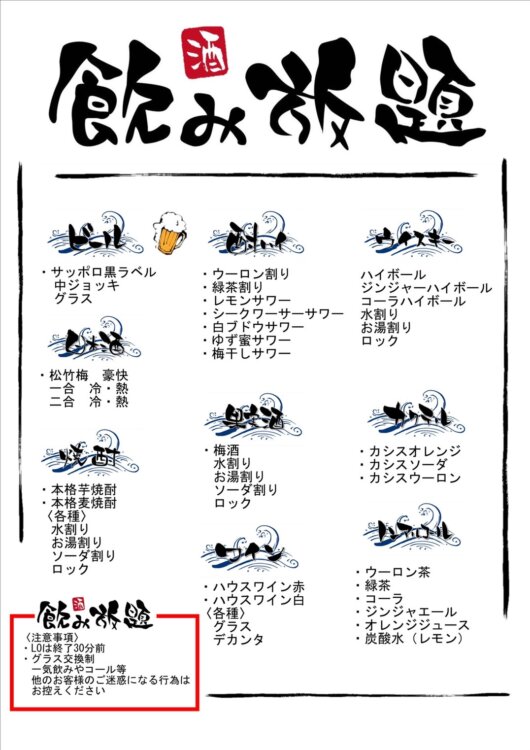 酒
飲み放題
ビール
・サッポロ黒ラベル
中ジョッキ
グラス
日本酒
・松竹梅 豪快
一合 冷・熱
二合 冷・熱
焼酎
・本格芋焼酎
・本格麦焼酎
〈各種〉
水割り
お湯割り
ソーダ割り
ロック
酎ハイ
・ウーロン割り
・緑茶割り
・レモンサワー
・シークワーサーサワー
・白ブドウサワー
・ゆず蜜サワー
・梅干しサワー
果実酒
・梅酒
水割り
お湯割り
ソーダ割り
ロック
ワイン
・ハウスワイン赤
・ハウスワイン白
〈各種〉
グラス
デカンタ
ウイスキー
ハイボール
ジンジャーハイボール
コーラハイボール
水割り
お湯割り
ロック
カクテル
・カシスオレンジ
・カシスソーダ
・カシスウーロン
ノンアルコール
・ウーロン茶
・緑茶
・コーラ
・ジンジャエール
・オレンジジュース
・炭酸水（レモン）
酒
飲み放題
〈注意事項〉
・LOは終了30分前
・グラス交換制
一気飲みやコール等
他のお客様のご迷惑になる行為は
お控えください